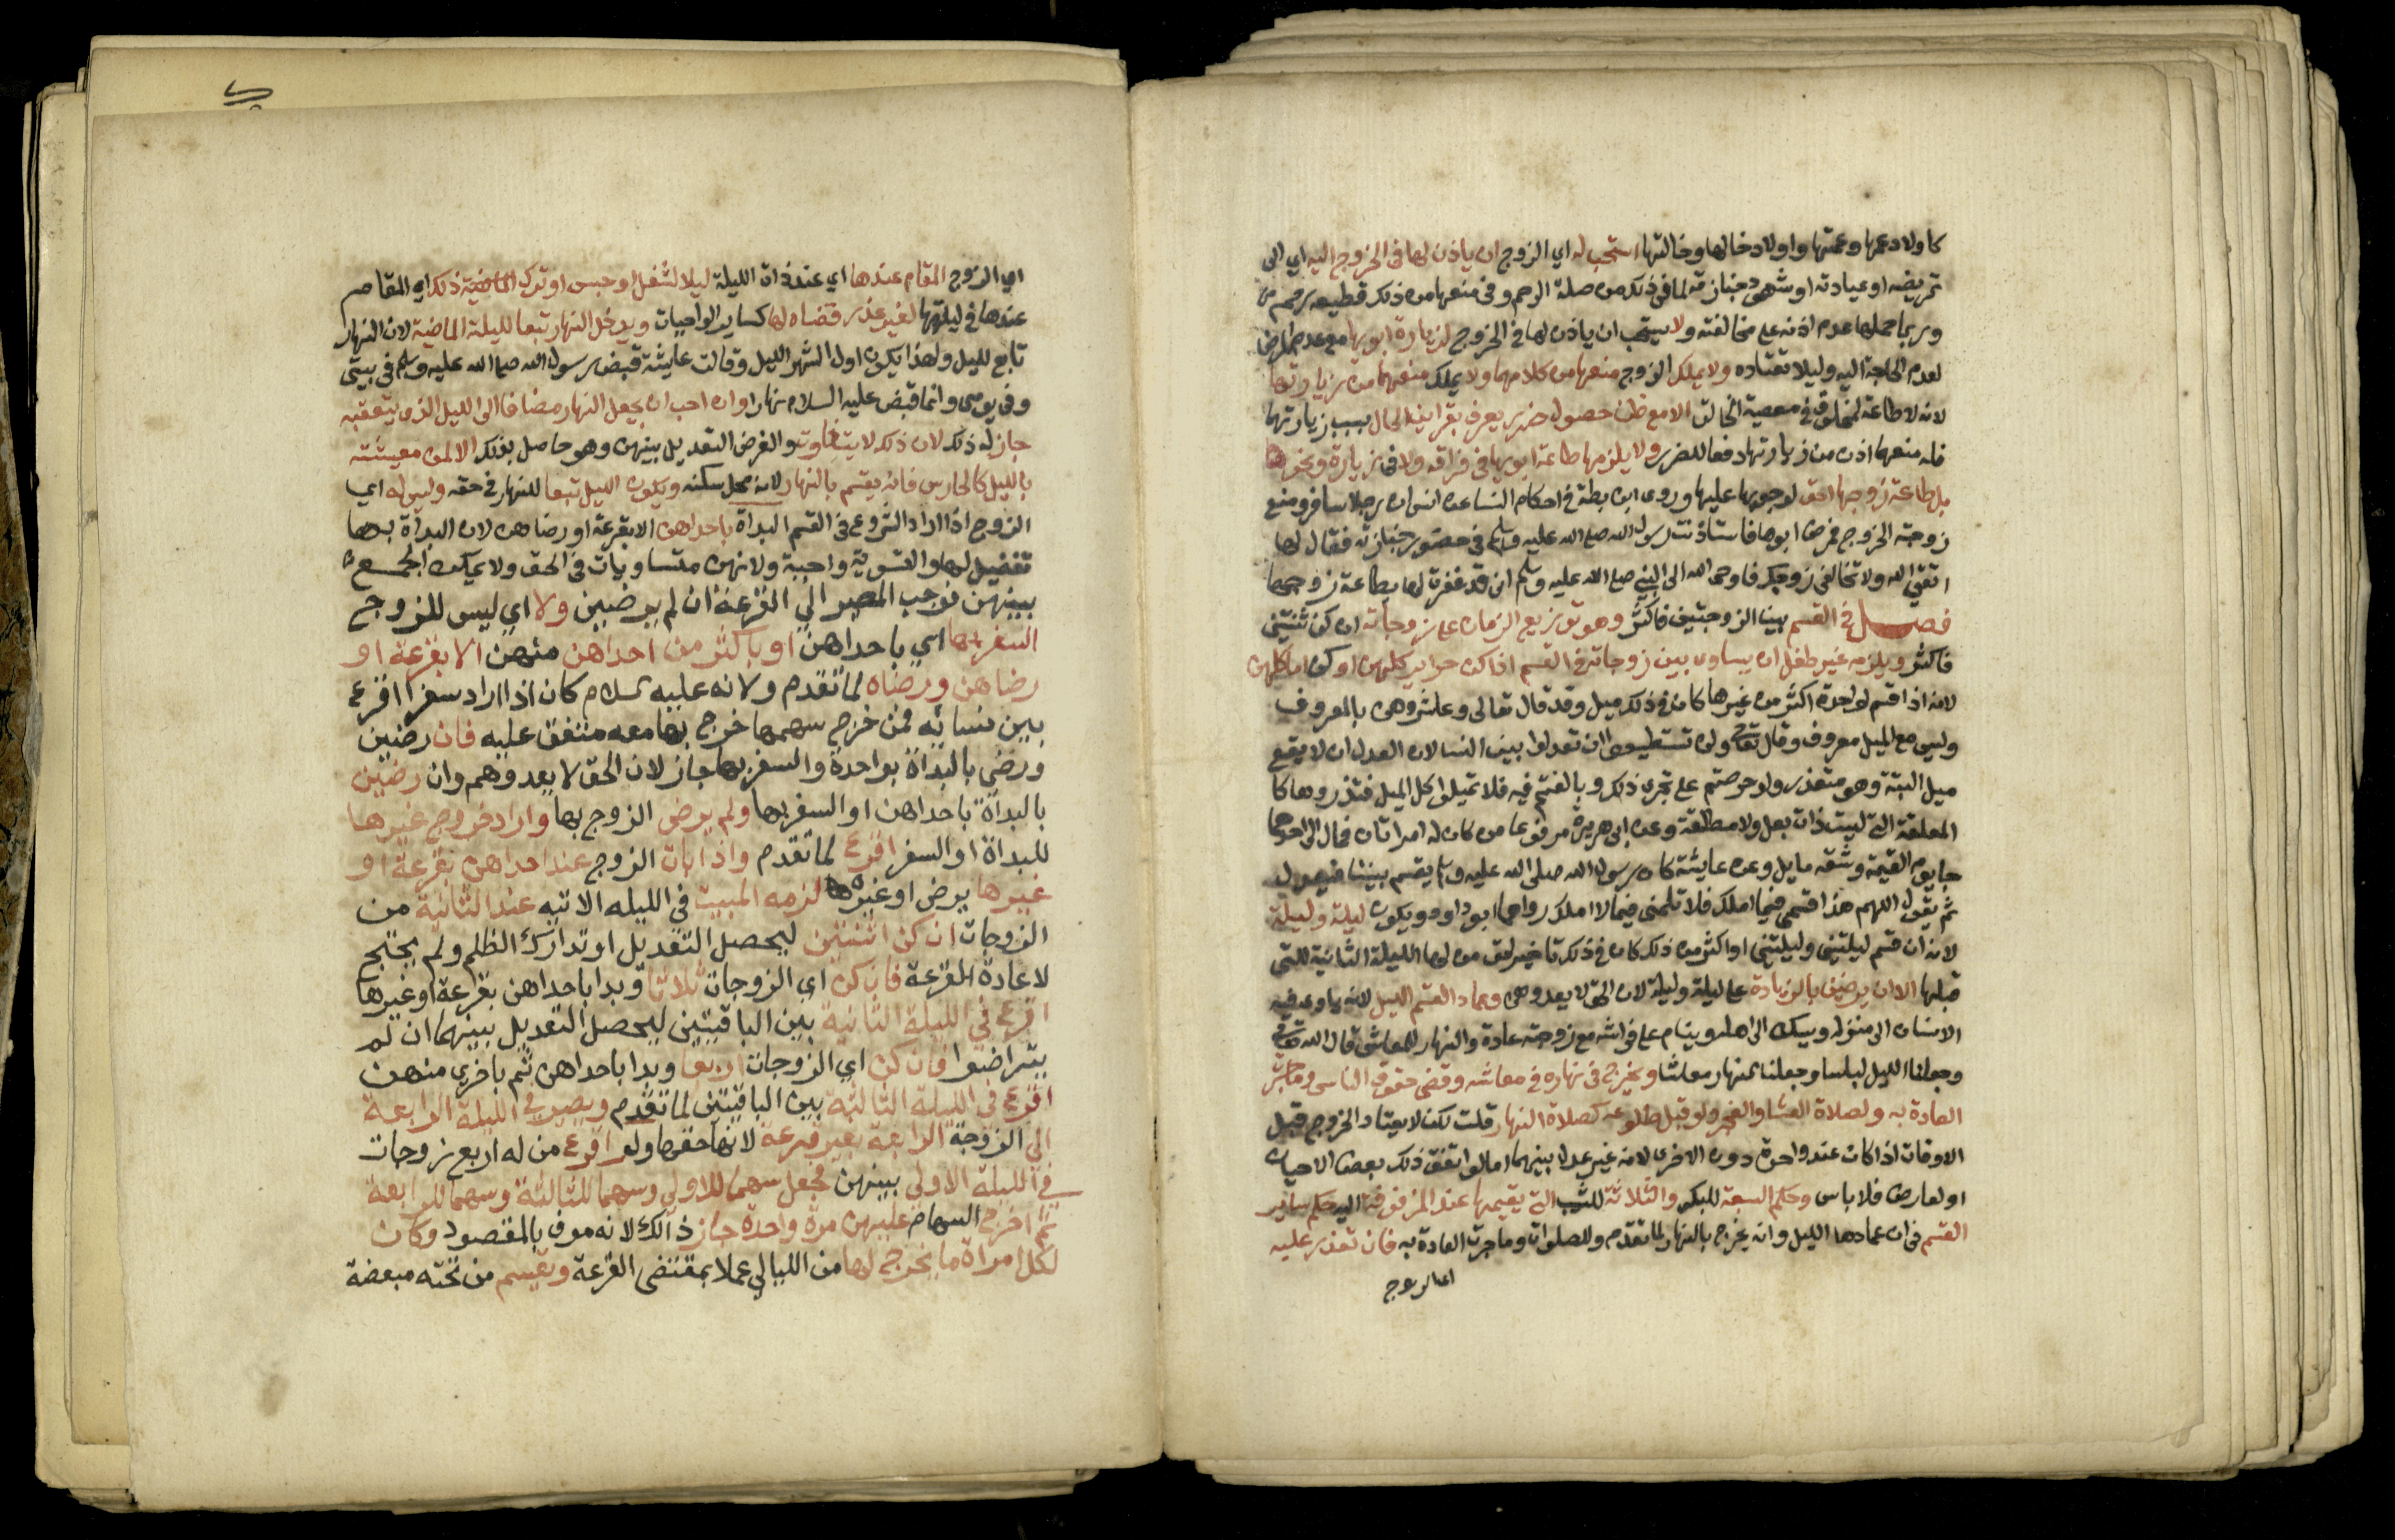 كاولاد عمها وعمتها واولاد خالها وخالتها استحب له اي الزوج ان ياذن لها في الخروج اليه اي الى
تمريضه او عيادته او شهود جنازته لما في ذلك من صلة الرحم وفي منعها من ذلك قطيعه رحم
وربما حملها عدم اذنه على مخالفته ولا يستحب ان ياذن لها في الخروج لزيارة ابويها مع عدم المرض
لعدم الحاجة اليه وليلا تعتاده ولا يملك الزوج منعها من كلامهما ولا يملك منعهما من زيارتها
لانه لا طاعة لمخلوق في معصية الخالق الا مع ظن حصول ضرر يعرف بقراين الحال بسبب زيارتهما
فله منعهما اذن من زيارتها دفعا للضرر ولا يلزمها طاعة ابويها في فراقه ولا في زيارة ونحوها
بل طاعة زوجها احق لوجوبها عليها وروى ابن بطة في احكام النسا عن انس ان رجلا سافر ومنع
زوجته الخروج فمرض ابوها فاستاذنت رسول الله صلى الله عليه وسلم في حضور جنازته فقال لها
اتقي الله ولا تخالفي زوجك فاوحى الله الى النبي صلى الله عليه وسلم اني قد غفرت لها بطاعة زوجها
فصل في القسم بين الزوجتين فاكثر وهو توزيع الزمان على زوجاته ان كن ثنتين
فاكثر ويلزم غير طفل ان يساوي بين زوجاته في القسم اذا كن حراير كلهن او كن اما كلهن
لانه اذا قسم لواحدة اكثر من غيرها كان في ذلك ميل وقد قال تعالى وعاشروهن بالمعروف
وليس مع الميل معروف وقال تعالى ولن تستطيعوا ان تعدلوا بين النسا لان العدل ان لا يقع
ميل البتة وهو متعذر ولو حرصتم على تحري ذلك وبالغتم فيه فلا تميلوا كل الميل فتذروها كا
المعلقة التي ليست ذات بعل ولا مطلقة وعن ابي هريرة مرفوعا من كان له امراتان فمال الى احداهما
جا يوم القيمة وشقه مايل وعن عايشة كان رسول الله صلى الله عليه وسلم يقسم بيننا فيعدل
ثم يقول اللهم هذا قسمي فيما املك فلا تلمني فيما لا املك رواهما ابو داود ويكون ليلة وليلة
لانه ان قسم ليلتين وليلتين او اكثر من ذلك كان في ذلك تاخير لحق من لها الليلة الثانية للتي
قبلها الا ان يرضين بالزيادة على ليلة وليلة لان الحق لا يعدوهن وعماد القسم الليل لانه ياوي فيه
الانسان الى منزله ويسكن الى اهله وينام على فراشه مع زوجته عادة والنهار للمعاش قال الله تعالى
وجعلنا الليل لباسا وجعلنا النهار معاشا ويخرج في نهاره في معاشه وقضى حقوق الناس وما جرت
العادة به ولصلاة العشا والفجر ولو قبل طلوعه كصلاة النهار قلت لكن لا يعتاد الخروج قبل
الاوقات اذا كان عند واحدة دون الاخرى لانه غير عدل بينهما اما لو اتفق ذلك بعض الاحيان
او لعارض فلا باس وحكم السبعة للبكر والثلاثة للثيب التي يقيمها عند المزفوفة اليه حكم ساير
القسم في ان عمادها الليل وانه يخرج بالنهار لما تقدم وللصلوات وما جرت العادة به فان تعذر عليه
اي الزوج
اي الزوج المقام عندها اي عند ذات الليلة ليلا لشغل او حبس او ترك ذلك اي المقام
عندها في ليلتها لغير عذر قضاه لها كساير الواجبات ويدخل النهار تبعا لليلة الماضية لان النهار
تابع لليل ولهذا يكون اول الشهر الليل وقالت عايشة قبض رسول الله صلى الله عليه وسلم في بيتي
وفي يومي وانما قبض عليه السلام نهارا وان احب ان يجعل النهار مضافا الى الليل الذي يتعقبه
جاز له ذلك لان ذلك لا يتفاوت والغرض التعديل بينهن وهو حاصل بذلك الا لمن معيشته
بالليل كالحارس فانه يقسم بالنهار لانه محل سكنه ويكون الليل تبعا للنهار في حقه وليس له اي
الزوج اذا اراد الشروع في القسم البداة باحداهن الا بقرعة او رضاهن لان البداة بها
تفضيل لها والتسوية واجبة ولانهن متساويات في الحق ولا يمكن الجمع
بينهن فوجب المصير الي القرعة ان لم يرضين ولا اي ليس للزوج
السفر بها اي باحداهن او باكثر من احداهن منهن الا بقرعة او
رضاهن ورضاه لما تقدم ولانه عليه السلام كان اذا اراد سفرا اقرع
بين نسايه فمن خرج سهمها خرج بها معه متفق عليه فان رضين
ورضي بالبداة بواحدة والسفر بها جاز لان الحق لا يعدوهم وان رضين
بالبداة باحداهن او السفر بها ولم يرض الزوج بها واراد خروج غيرها
للبداة او السفر اقرع لما تقدم واذا بات الزوج عند احداهن بقرعة او
غيرها برضى او غيرها لزمه المبيت في الليله الاتيه عند الثانية من
الزوجات ان كن اثنتين ليحصل التعديل او تدارك الظلم ولم يحتج
لاعادة القرعة فان كن اي الزوجات ثلاثا وبدا باحداهن بقرعة او غيرها
اقرع في الليلة الثانية بين الباقيتين ليحصل التعديل بينهما ان لم
يتراضوا فان كن اي الزوجات اربعا وبدا باحداهن ثم باخرى منهن
اقرع في الليلة الثالثة بين الباقيتين لما تقدم ويصير في الليلة الرابعة
الى الزوجة الرابعة بغير قرعة لانها حقها ولو اقرع من له اربع زوجات
في الليلة الاولى بينهن فجعل سهما للاولى وسهما للثالثة وسهما للرابعة
ثم اخرج السهام عليهن مرة واحدة جاز ذلك لانه موف بالمقصود وكان
لكل امراة ما يخرج لها من الليالي عملا بمقتضى القرعة ويقسم من تحته مبعضة